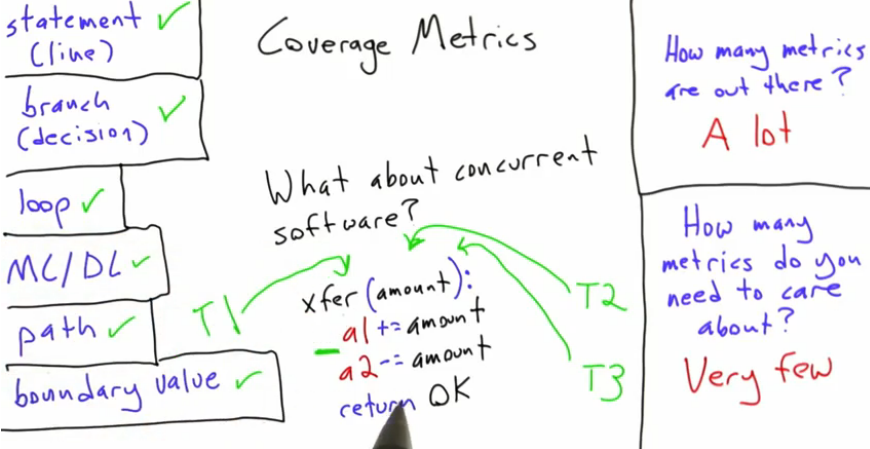 statement
(line)
branch
(decision)
loop
MC/DC
path
boundary value
Coverage Metrics
What about concurrent
software?
T1
T2
T3
xfer (amount):
a1 += amount
a2 -= amount
return OK
How many metrics
are out there?
A lot
How many
metrics do you
need to care
about?
Very few